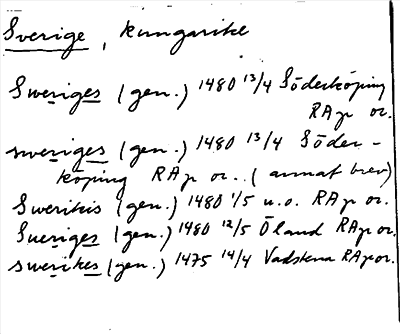 Sverige, kungarike
Sweriges (gen.) 1480 13/4 Söderköping
RAp or.
sweriges (gen.) 1480 13/4 Söder-
köping RAp or.. (annat brev)
Swerikis (gen.) 1480 1/5 u.o. RAp or.
Sueriges (gen.) 1480 12/5 Öland RAp or.
swerikes (gen.) 1475 14/4 Vadstena RAp or.